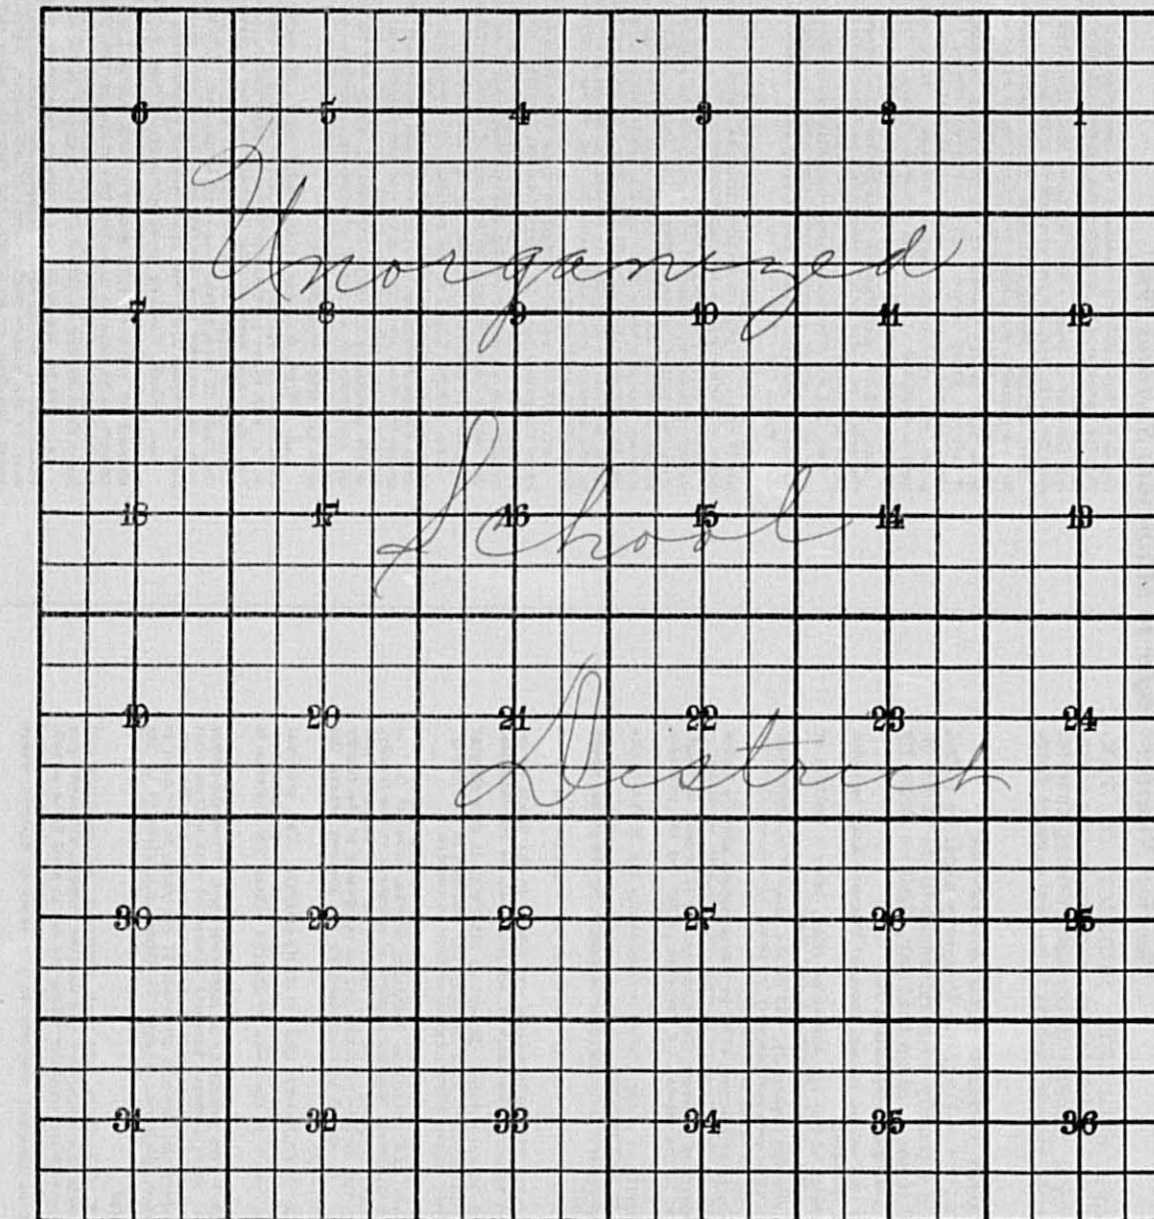 6 5 4 3 2 1
Unorganized
7 8 9 10 11 12
School
18 17 16 15 14 13
19 20 21 22 23 24
District
30 29 28 27 26 25
31 32 33 34 35 36